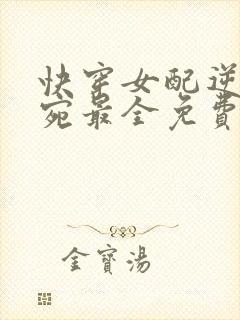 快穿女配逆
宛最全免費
金寶湯